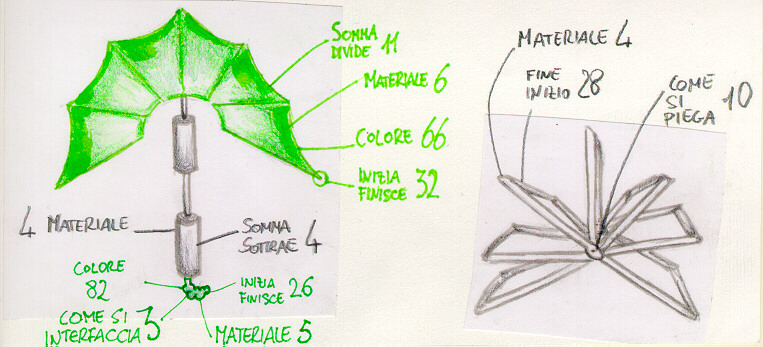 SOMMA
DIVIDE 11
MATERIALE 6
COLORE 66
INIZIA
FINISCE 32
4 MATERIALE
SOMMA
SOTTRAE 4
COLORE
82
INIZIA
FINISCE 26
COME SI
INTERFACCIA 3
MATERIALE 5
MATERIALE 4
FINE
INIZIO 28
COME
SI
PIEGA 10